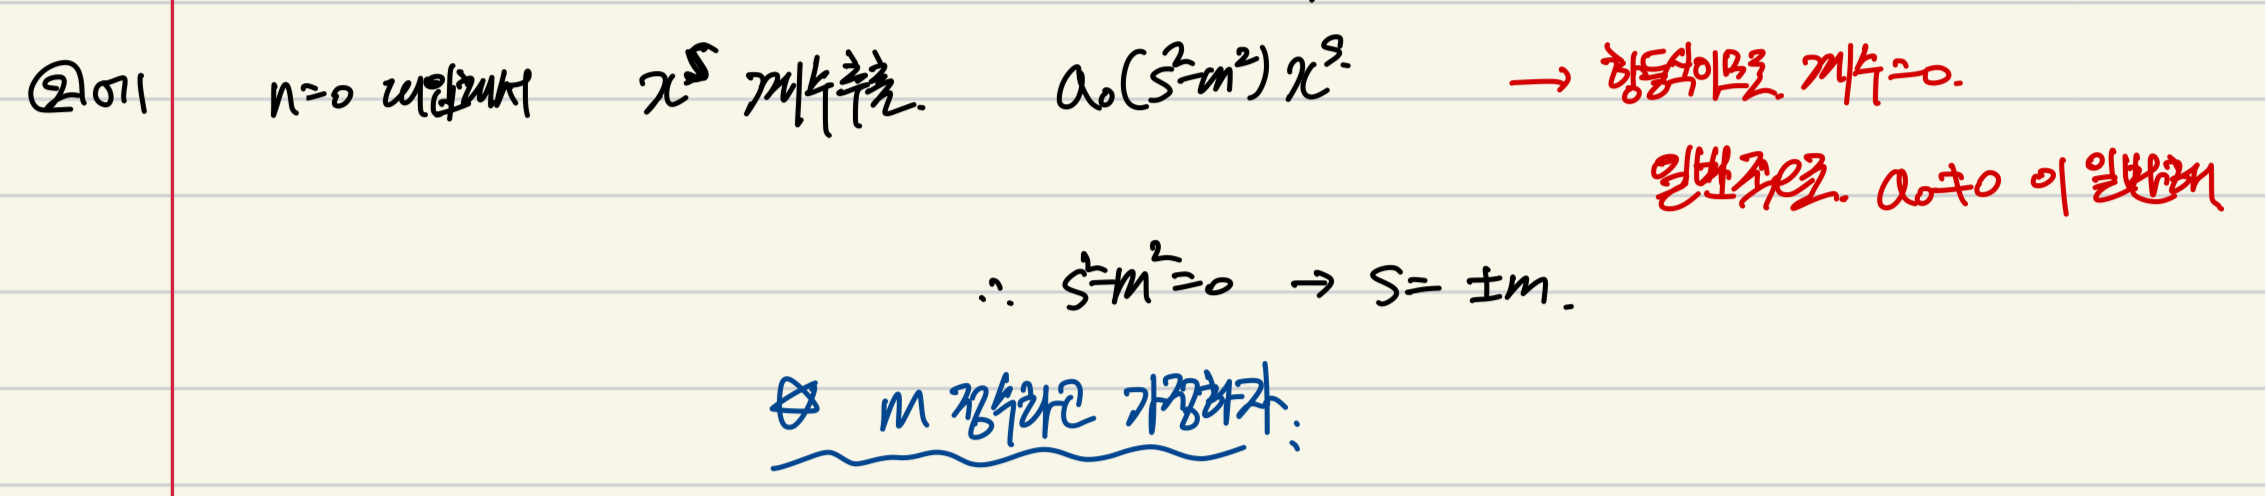 ②에 n=0 대입해서 x^s 계수추출. a₀(s²-m²)x^s. → 항등식이므로 계수=0.
일반적으로. a₀≠0 이 일반해
∴ s²-m²=0 → s= ±m.
☆ m 정수라고 가정하자: